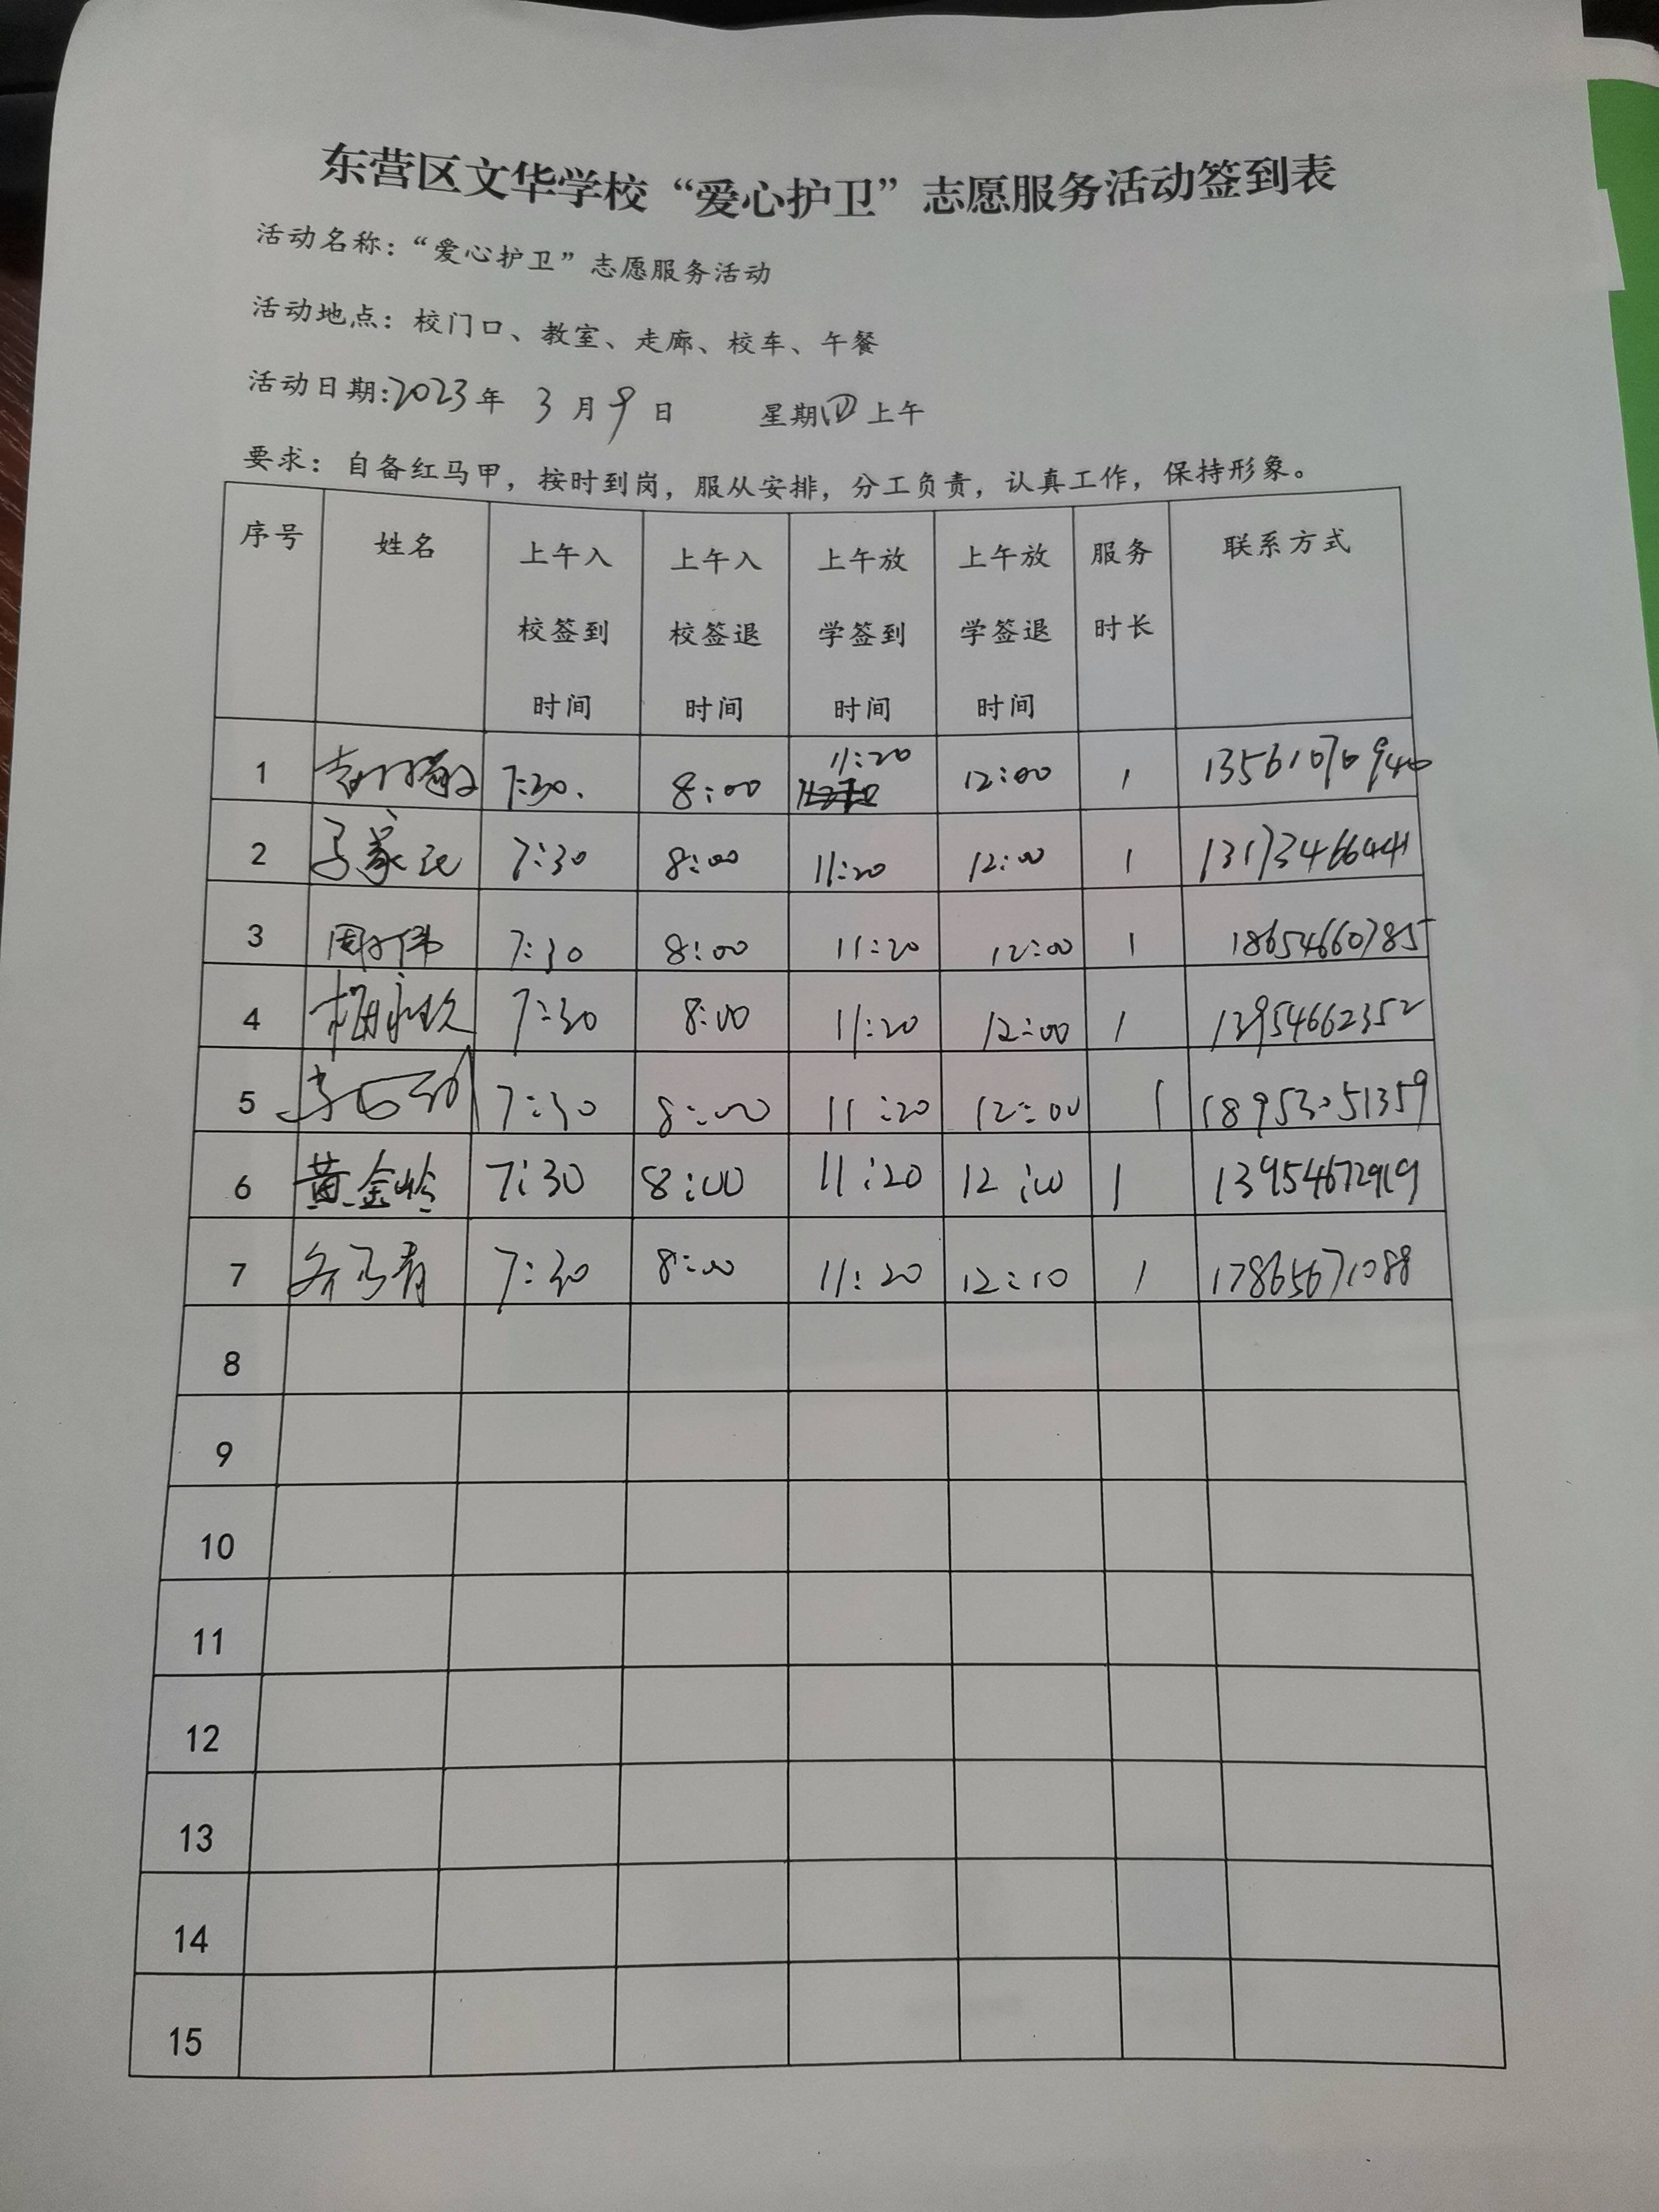 东营区文华学校“爱心护卫”志愿服务活动签到表
活动名称：“爱心护卫”志愿服务活动
活动地点：校门口、教室、走廊、校车、午餐
活动日期:2023年 3月9日 星期四上午
要求：自备红马甲，按时到岗，服从安排，分工负责，认真工作，保持形象。
序号 姓名 上午入校签到时间 上午入校签退时间 上午放学签到时间 上午放学签退时间 服务时长 联系方式
1 7:30. 8:00 11:20 12:00 1 13561070940
2 7:30 8:00 11:20 12:00 1 13173466441
3 周伟 7:30 8:00 11:20 12:00 1 18654660785
4 7:30 8:00 11:20 12:00 1 13954662352
5 7:30 8:00 11:20 12:00 1
6 黄金岭 7:30 8:00 11:20 12:00 1 13954672919
7 7:30 8:00 11:20 12:10 1 17865671088
8
9
10
11
12
13
14
15